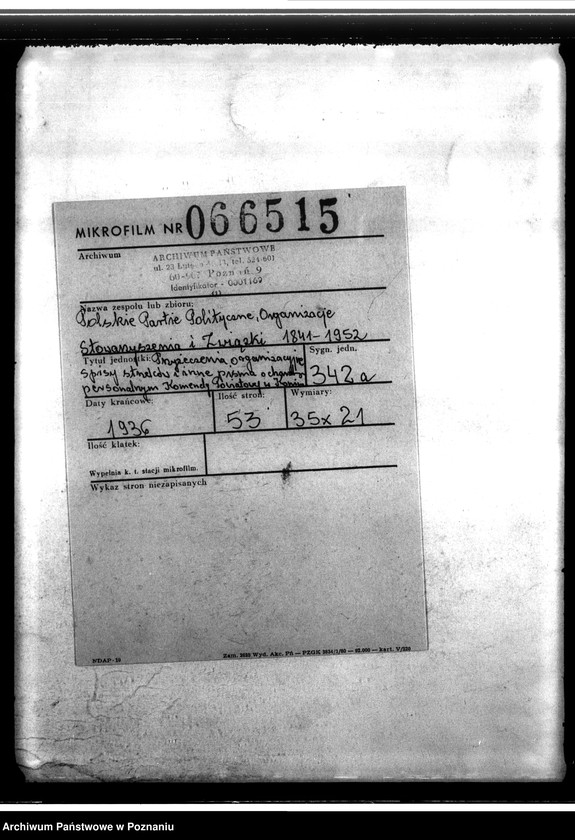 MIKROFILM NR 066515
Archiwum
ARCHIWUM PAŃSTWOWE
ul. 23 tel. 524-601
60-967 Poznań 9
Identyfikator - 0001169
Nazwa zespołu lub zbioru:
Polskie Partie Polityczne, Organizacje
Stowarzyszenia i Związki 1841-1952
Tytuł jednostki: organizacyjne
spisy strzelców i inne pisma o char.
personalnym Komendy Powiatowej w
Sygn. jedn.
342a
Daty krańcowe:
1936
Ilość stron:
53
Wymiary:
35x21
Ilość klatek:
Wypełnia k. t. stacji mikrofilm.
Wykaz stron niezapisanych
NDAP-
Zam. Wyd. Akc. Pń — PZGK — kart. V/
Archiwum Państwowe w Poznaniu